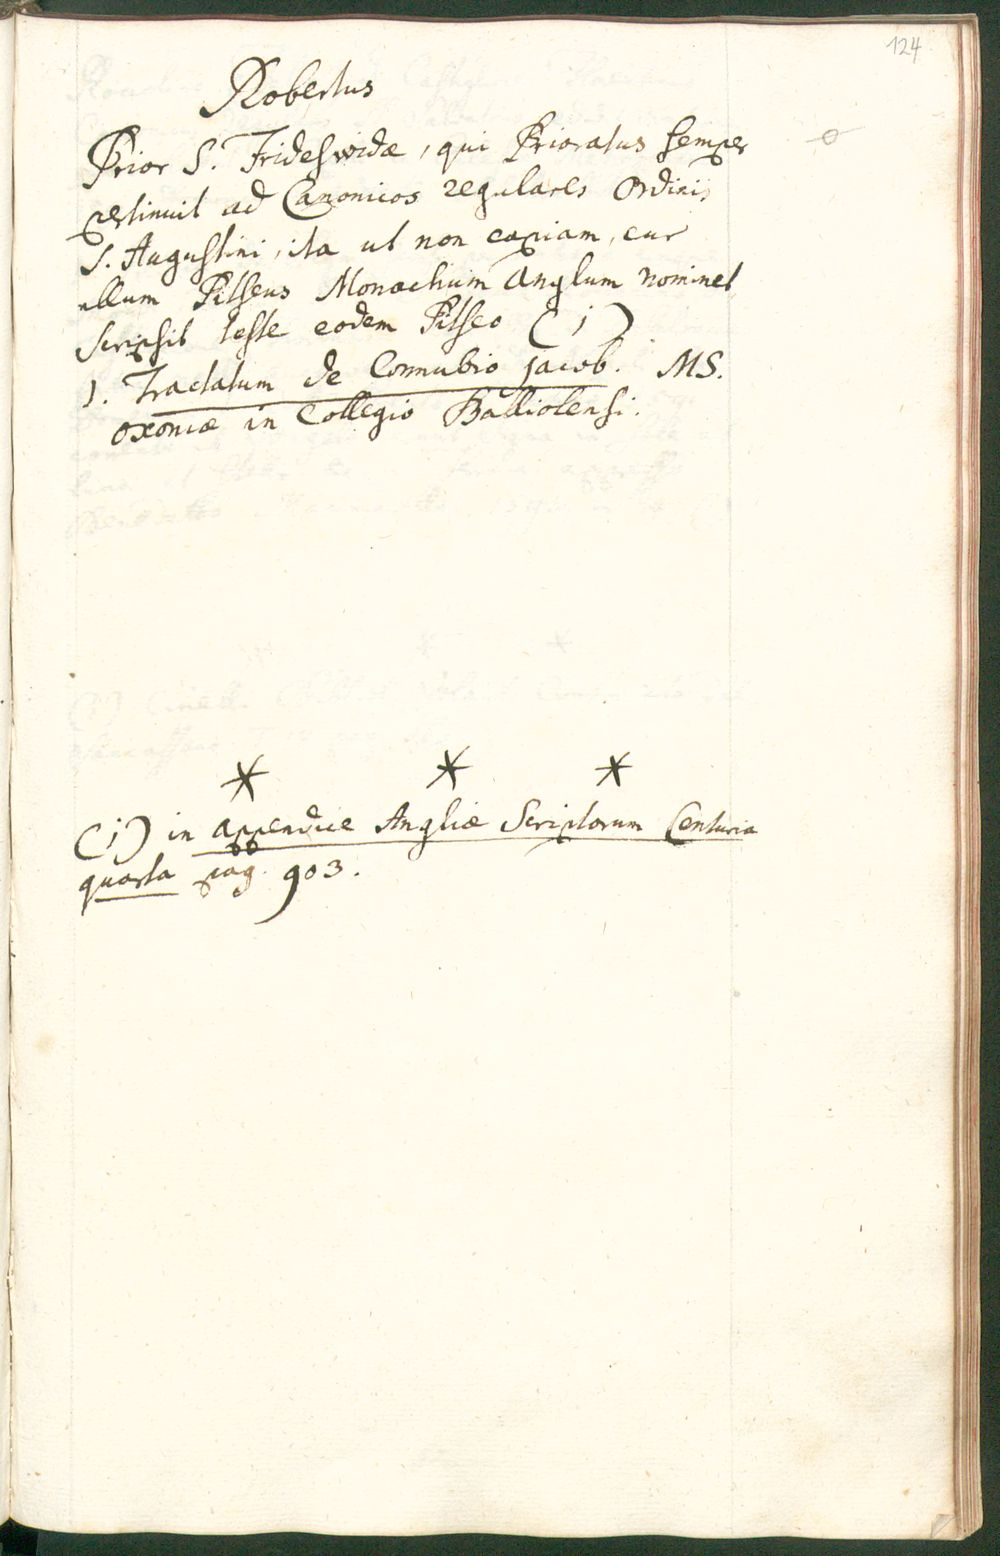 124
Robertus
Prior S. Frideswidæ, qui Prioratus semper
pertinuit ad Canonicos regulares Ordinis
S. Augustini, ita ut non capiam, cur
illum Pitseus Monachum Anglum nominet
Scripsit teste eodem Pitseo (1)
1. Tractatum de Connubio Jacob. MS.
Oxoniæ in Collegio Balliolensi.
(1) in appendice Angliæ Scriptorum Centuria
quarta pag. 903.